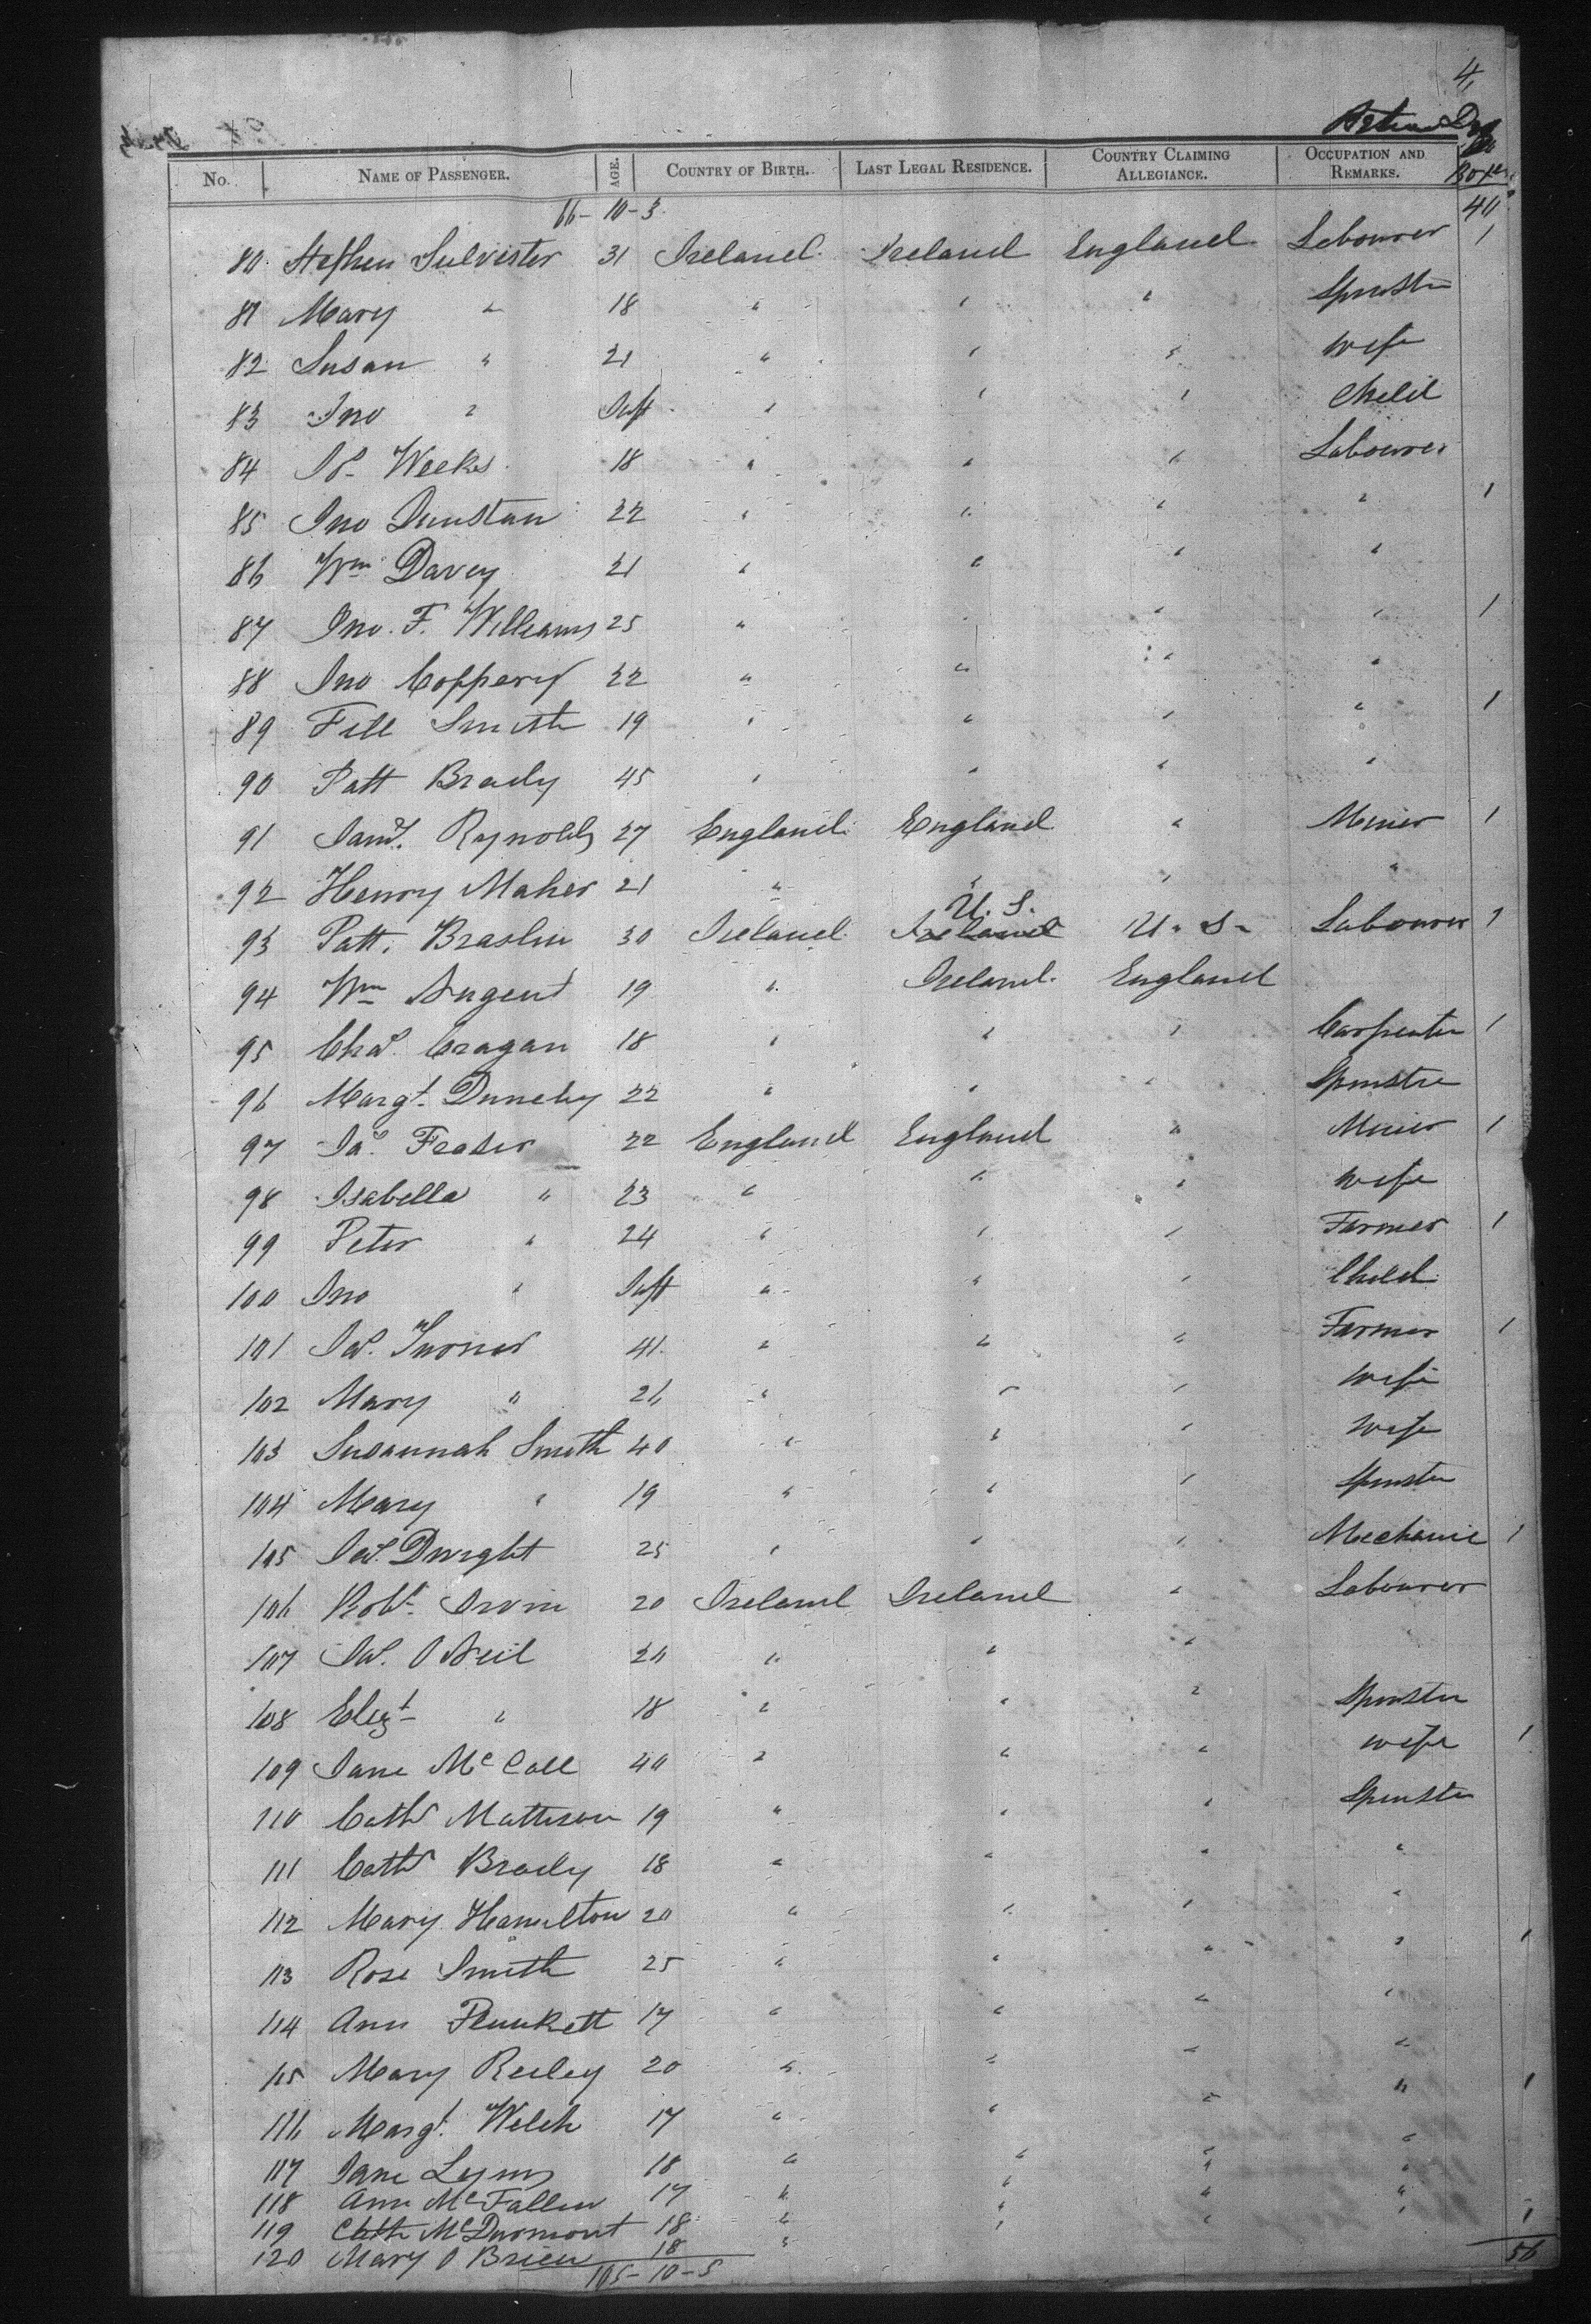 4
No. NAME OF PASSENGER. AGE. COUNTRY OF BIRTH. LAST LEGAL RESIDENCE. COUNTRY CLAIMING ALLEGIANCE. OCCUPATION AND REMARKS. Boxes
66-10-3 40
80 Stephen Sulvister 31 Ireland Ireland England Labourer 1
81 Mary " 18 " " " Spinster
82 Susan " 21 " " " Wife
83 Jno " Inft " " " Child
84 Weeks 18 " " " Labourer
85 Jno Dunstan 22 " " " " 1
86 Wm Davey 21 " " " "
87 Jno. F. Williams 25 " " " " 1
88 Jno 22 " " " "
89 Fill Smith 19 " " " " 1
90 Patt Brady 45 " " " "
91 Saml. Reynolds 27 England England " Miner 1
92 Henry Maher 21 " " " "
93 Patt. Braslin 30 Ireland Ireland U. S. U. S. Labourer 1
94 Wm Nugent 19 " Ireland England
95 Chas. Cragan 18 " " " Carpenter 1
96 Margt. 22 " " " Spinster
97 Jas. Feaser 22 England England " Miner 1
98 Isabella " 23 " " " Wife
99 Peter " 24 " " " Farmer 1
100 Jno " Inft " " " Child
101 Jas. Turner 41 " " " Farmer 1
102 Mary " " " " Wife
103 Susannah Smith 40 " " " Wife
104 Mary " 19 " " " Spinster
105 Jas. Dwight 25 " " " Mechanic 1
106 Robt. Irvin 20 Ireland Ireland " Labourer
107 Jas. O Neil 20 " " "
108 Elizt " 18 " " " Spinster
109 Jane McCall 40 " " " Wife 1
110 Cath Mattison 19 " " " Spinster
111 Cath Brady 18 " " " "
112 Mary Hamilton 20 " " " "
113 Rose Smith 25 " " " " 1
114 Ann Plunkett 17 " " " "
115 Mary Reiley 20 " " " "
116 Margt. Welch 17 " " " " 1
117 Jane Lyons 18 " " " "
118 Ann McFallin 17 " " " "
119 Cath McDurmont 18 " " " "
120 Mary O Brien 18 " " " " 1
105-10-5 56